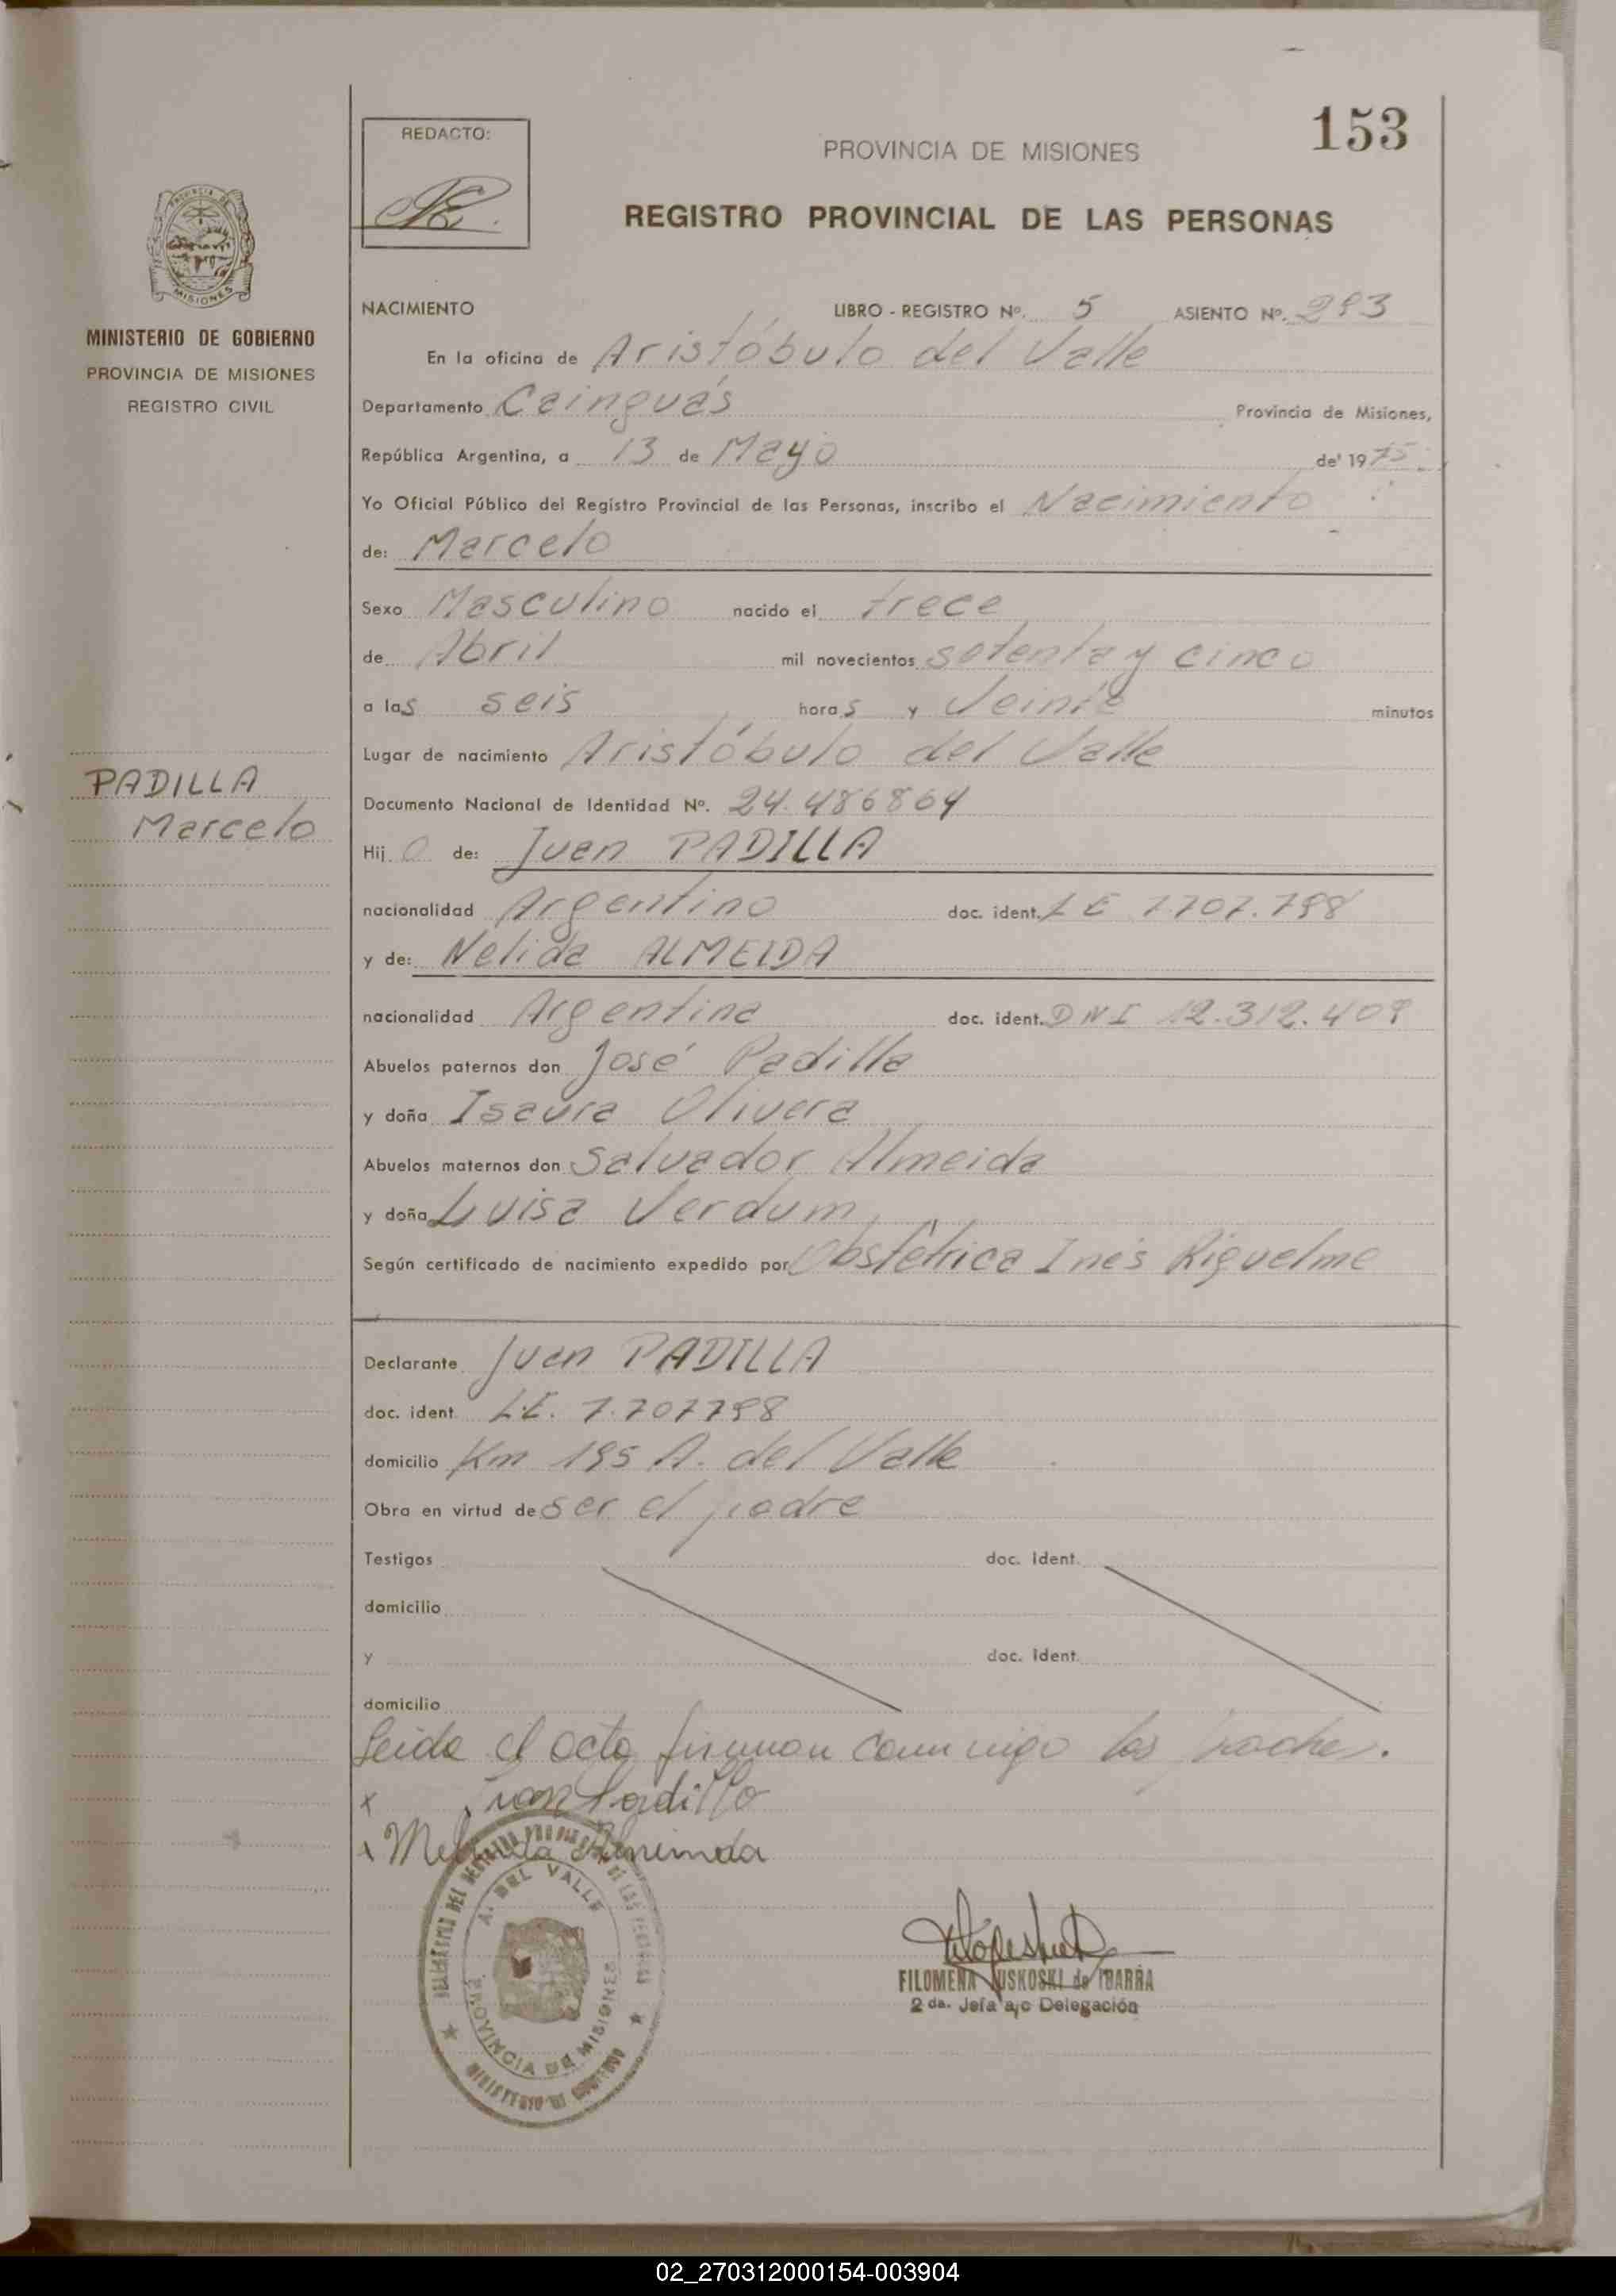 153
REDACTO:
PROVINCIA DE MISIONES
REGISTRO PROVINCIAL DE LAS PERSONAS
MISIONES
MINISTERIO DE GOBIERNO
PROVINCIA DE MISIONES
REGISTRO CIVIL
PADILLA
Marcelo
NACIMIENTO LIBRO - REGISTRO Nº. 5 ASIENTO Nº. 293
En la oficina de Aristóbulo del Valle
Departamento Cainguás Provincia de Misiones,
República Argentina, a 13 de Mayo de 1975.
Yo Oficial Público del Registro Provincial de las Personas, inscribo el Nacimiento
de: Marcelo
Sexo Masculino nacido el trece
de Abril mil novecientos setenta y cinco
a las seis horas y Veinte minutos
Lugar de nacimiento Aristóbulo del Valle
Documento Nacional de Identidad Nº. 24.486864
Hijo de: Juan PADILLA
nacionalidad Argentino doc. ident. LE 7.707.798
y de: Nelida ALMEIDA
nacionalidad Argentina doc. ident. DNI 12.312.409
Abuelos paternos don José Padilla
y doña Isaura Olivera
Abuelos maternos don Salvador Almeida
y doña Luisa Verdum
Según certificado de nacimiento expedido por Obstétrica Inés Riquelme
Declarante Juan PADILLA
doc. ident. L.E. 7.707798
domicilio Km 195 A. del Valle
Obra en virtud de ser el padre
Testigos doc. ident.
domicilio
y doc. ident.
domicilio
Leida el acta firman conmigo los padres.
x Juan Padilla
x
A. DEL VALLE
PROVINCIA DE MISIONES
MINISTERIO DE GOBIERNO
FILOMENA JUSKOSKI de IBARRA
2 da. Jefa a/c Delegación
02_270312000154-003904